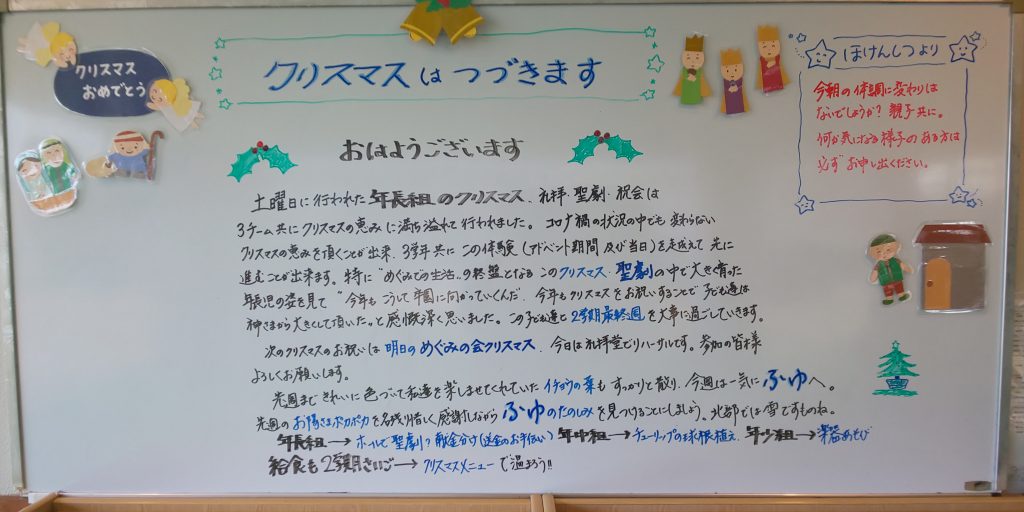 クリスマス
おめでとう
クリスマスはつづきます
ほけんしつより
今朝の体調に変わりは
ないでしょうか？親子共に。
何か気になる様子のある方は
必ずお申し出ください。
おはようございます
土曜日に行われた年長組のクリスマス、礼拝・聖劇・祝会は
3チーム共にクリスマスの恵みに満ち溢れて行われました。コロナ禍の状況の中でも変わらない
クリスマスの恵みを頂くことが出来、3学年共にこの体験(アドベント期間及び当日)を走成えて先に
進むことが出来ます。特に"めぐみでの生活"の終盤となるこのクリスマス・聖劇の中で大きく育った
年長児の姿を見て"今年もこうして卒園に向かっていくんだ、今年もクリスマスをお祝いすることで子ども達は
神さまから大きくして頂いた"と感慨深く思いました。この子ども達と2学期最終週を大事に過ごしていきます。
次のクリスマスのお祝いは明日のめぐみの会クリスマス、今日は礼拝堂でリハーサルです。参加の皆様
よろしくお願いします。
先週まできれいに色づいて私達を楽しませてくれていたイチョウの葉もすっかりと散り、今週は一気にふゆへ。
先週のお陽さまポカポカを名残り惜しく感謝しながらふゆのたのしみを見つけることにしましょう。北部では雪ですものね。
年長組→ホールで聖劇？献金分け(送金のお手伝い) 年中組→チューリップの球根植え、年少組→楽器あそび
給食も2学期さいご→クリスマスメニューで温まろう!!